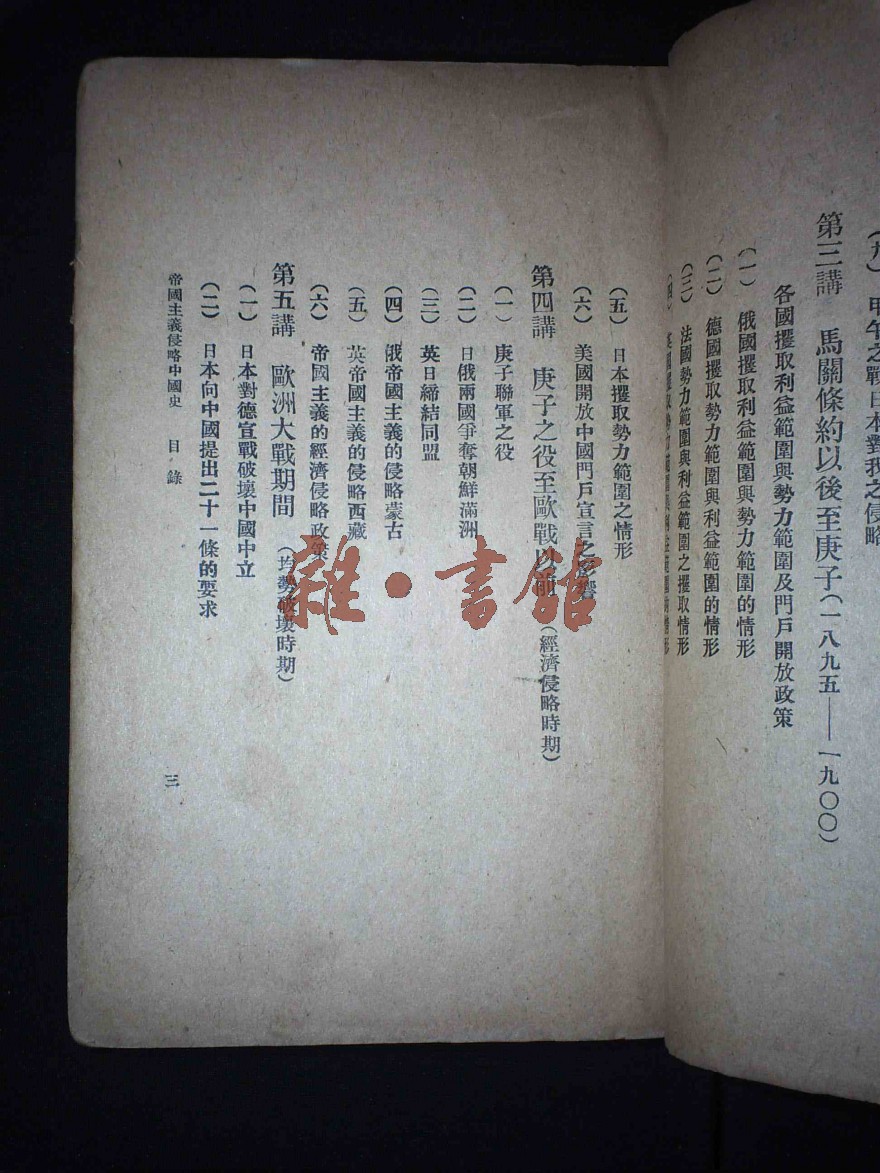 (九) 甲午之戰日本對我之侵略
第三講 馬關條約以後至庚子(一八九五——一九〇〇)
各國攫取利益範圍與勢力範圍及門戶開放政策
(一) 俄國攫取利益範圍與勢力範圍的情形
(二) 德國攫取勢力範圍與利益範圍的情形
(三) 法國勢力範圍與利益範圍之攫取情形
(四) 英國攫取勢力範圍與利益範圍的情形
(五) 日本攫取勢力範圍之情形
(六) 美國開放中國門戶宣言之影響
第四講 庚子之役至歐戰以前(經濟侵略時期)
(一) 庚子聯軍之役
(二) 日俄兩國爭奪朝鮮滿洲
(三) 英日締結同盟
(四) 俄帝國主義的侵略蒙古
(五) 英帝國主義的侵略西藏
(六) 帝國主義的經濟侵略政策
第五講 歐洲大戰期間(均勢破壞時期)
(一) 日本對德宣戰破壞中國中立
(二) 日本向中國提出二十一條的要求
帝國主義侵略中國史 目錄
三
雜·書館